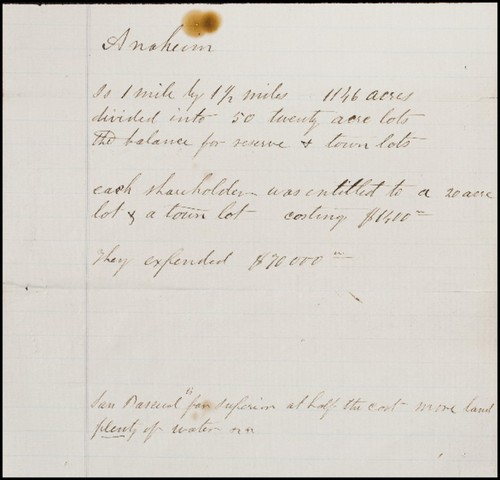 Anaheim
Is 1 mile by 1 1/2 miles 1146 acres
divided into 50 twenty acre lots
The balance for reserve & town lots
each shareholder was entitled to a 20 acre
lot & a town lot costing $1400
They expended $70000
San far superior at half the cost more land
plenty of water